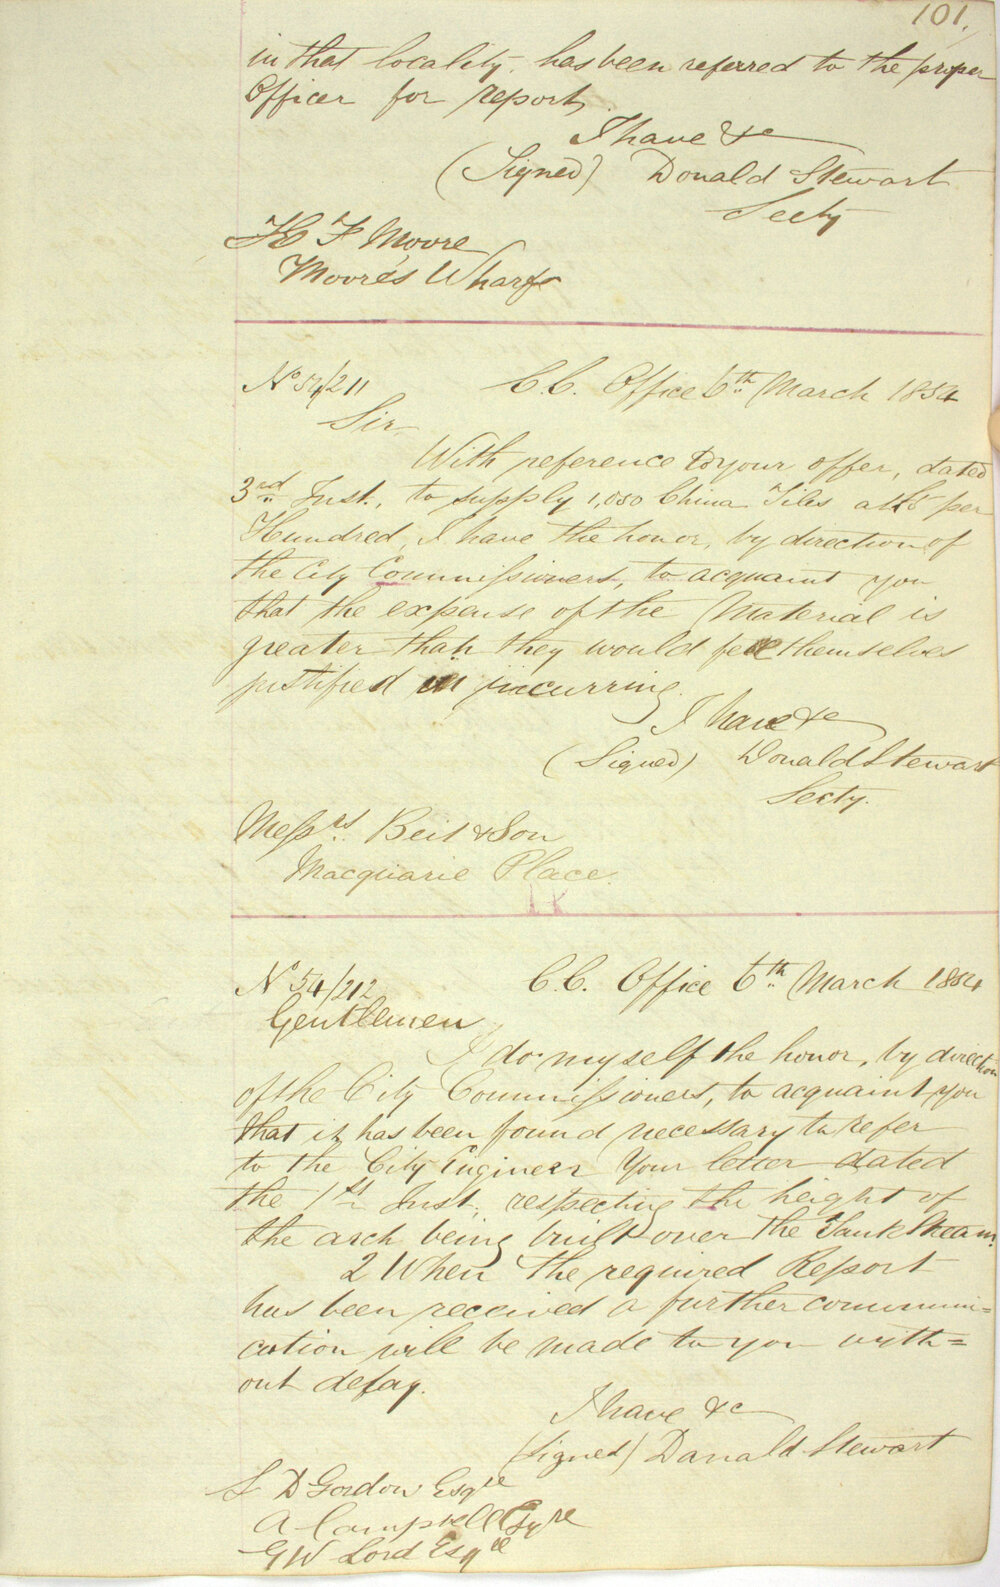 101.
in that locality, has been referred to the proper
Officer for report,
I have &c
(Signed) Donald Stewart
Secty
H F Moore
Moore's Wharf
No 54/211 C.C. Office 6th March 1854
Sir
With reference to your offer, dated
3rd Inst., to supply 1,050 China Tiles at per
Hundred, I have the honor, by direction of
the City Commissioners, to acquaint you
that the expense of the Material is
greater than they would feel themselves
justified in incurring.
I have &c
(Signed) Donald Stewart
Secty.
Messrs Beit & Son
Macquarie Place
A K
No 54/212 C.C. Office 6th March 1854
Gentlemen
I do myself the honor, by direction
of the City Commissioners, to acquaint you
that it has been found necessary to refer
to the City Engineer Your letter dated
the 1st Inst, respecting the height of
the arch being built over the Tank Stream.
2 When the required Report
has been received a further communi=
cation will be made to you with=
out delay.
I have &c
(Signed) Donald Stewart
S D Gordon Esqre
A Campbell Esqre
G W Lord Esqre